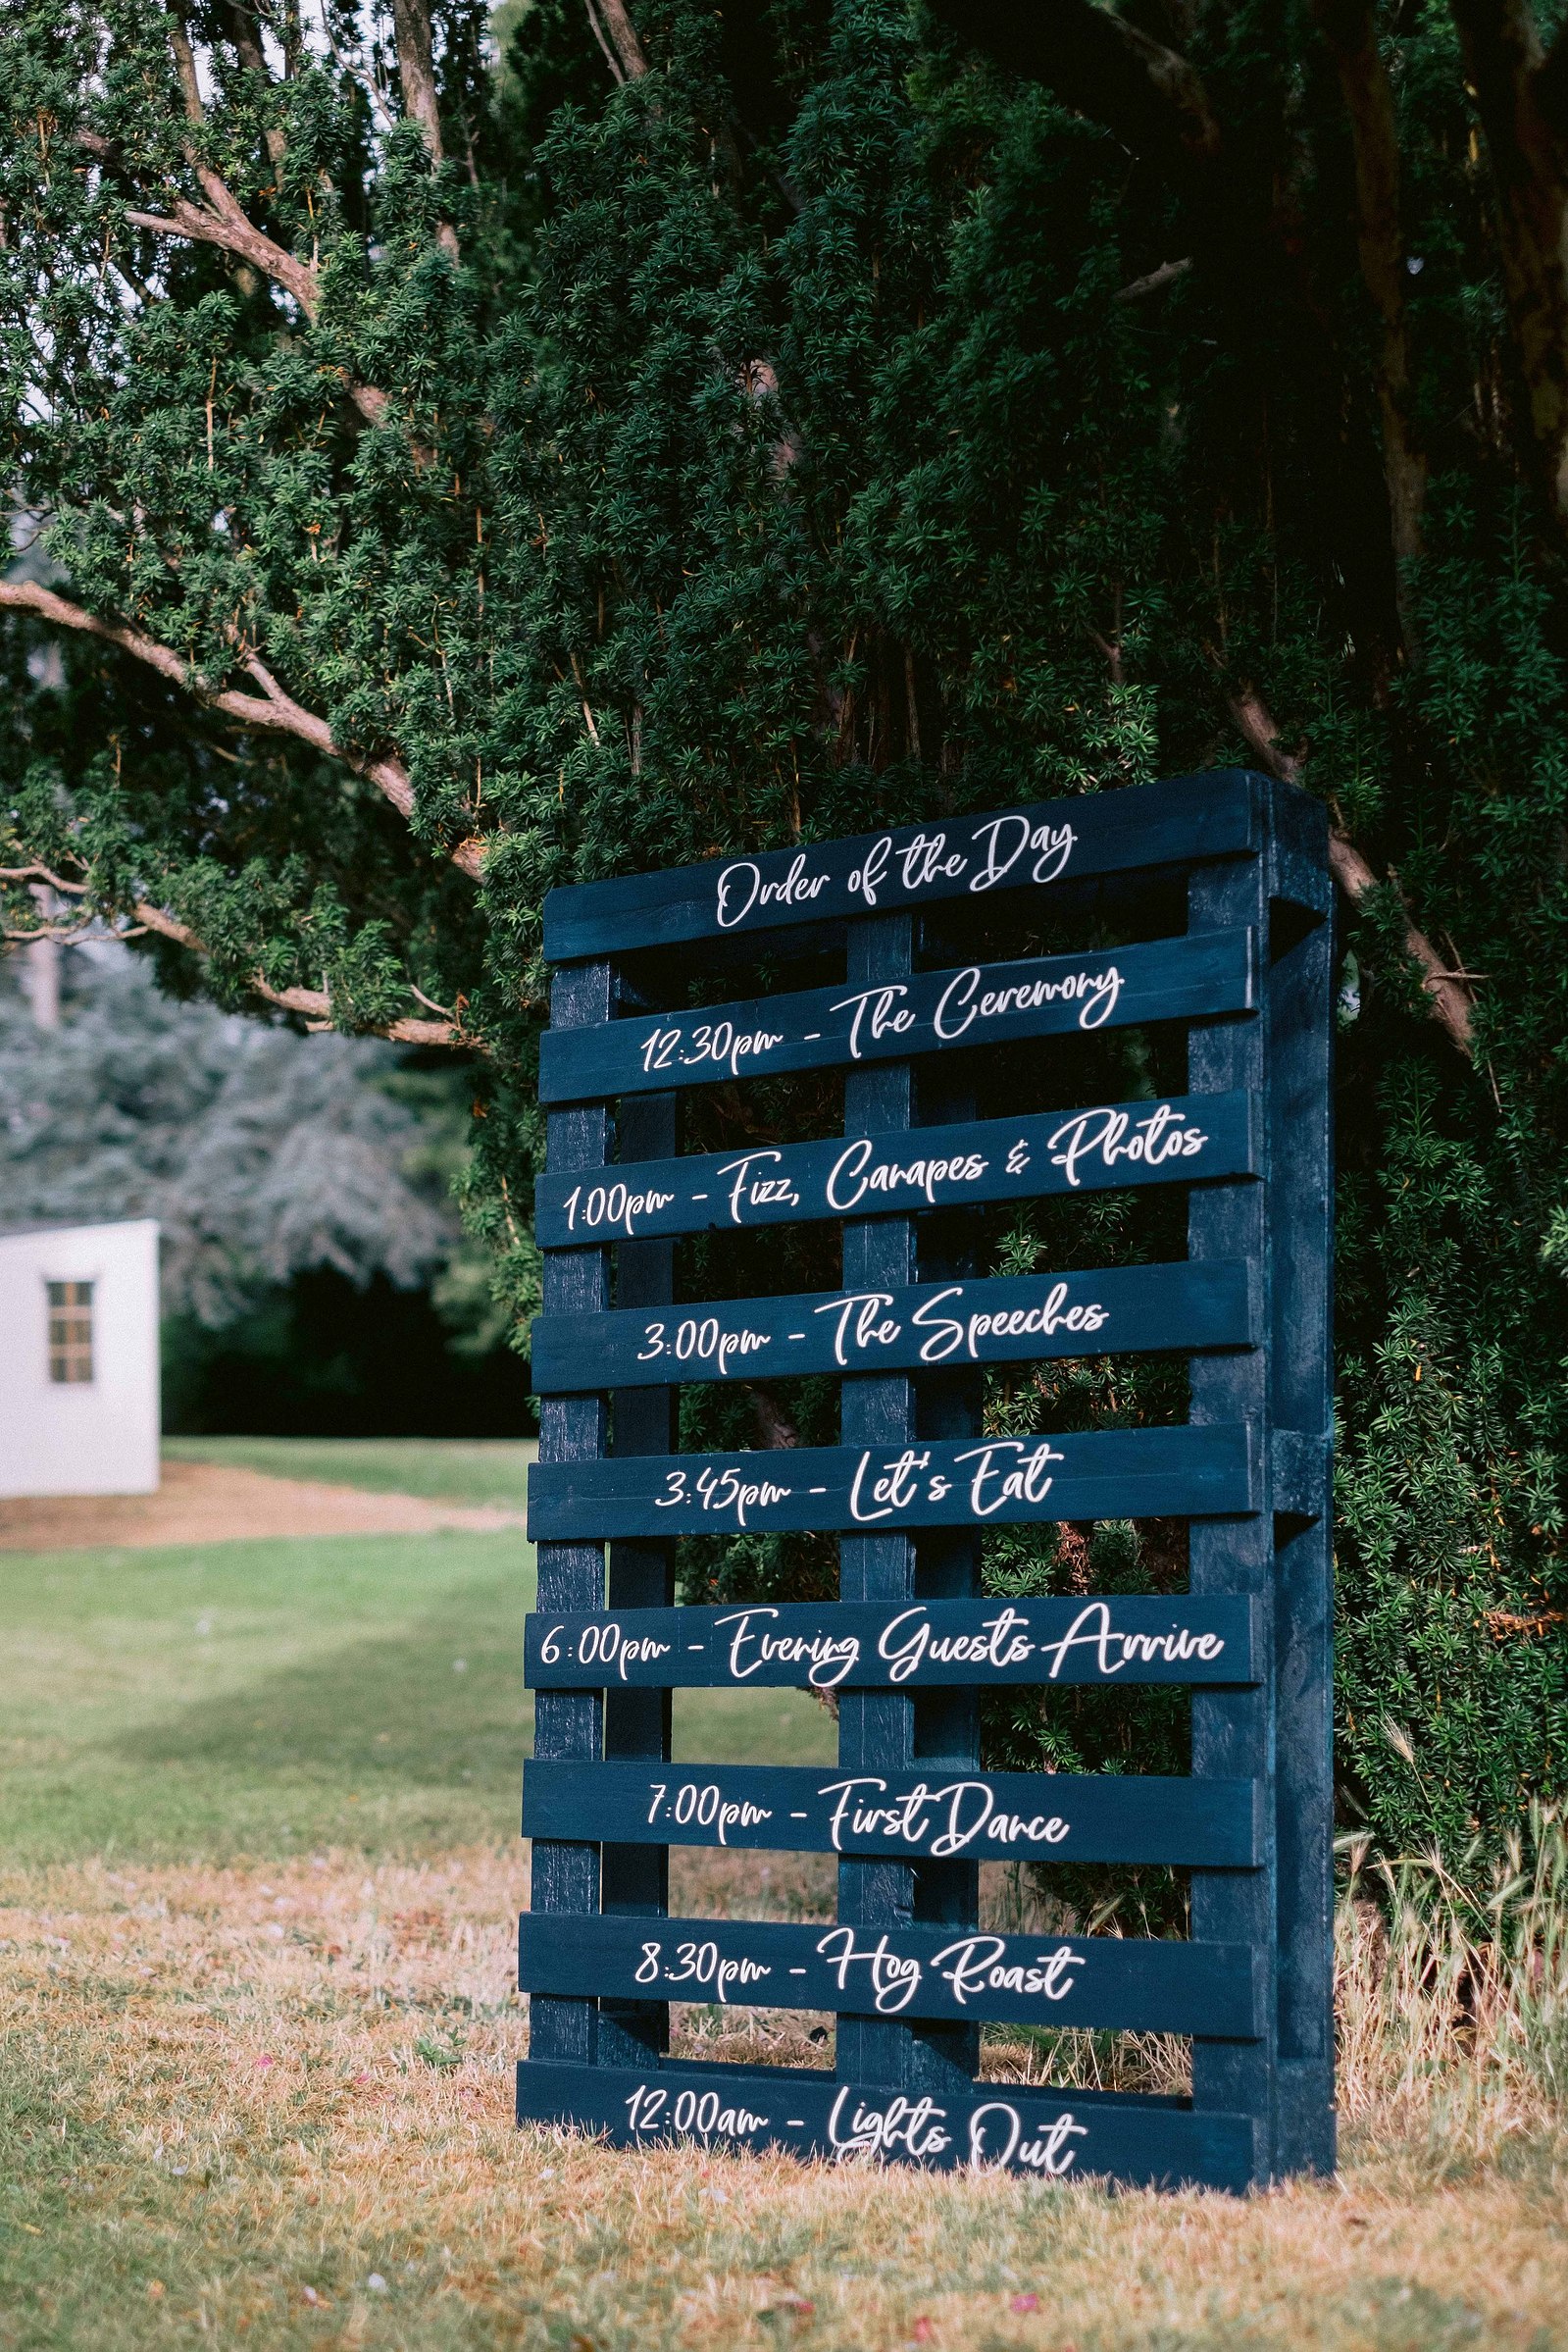 Order of the Day
12:30pm - The Ceremony
1:00pm - Fizz, Canapes & Photos
3:00pm - The Speeches
3:45pm - Let's Eat
6:00pm - Evening Guests Arrive
7:00pm - First Dance
8:30pm - Hog Roast
12:00am - Lights Out